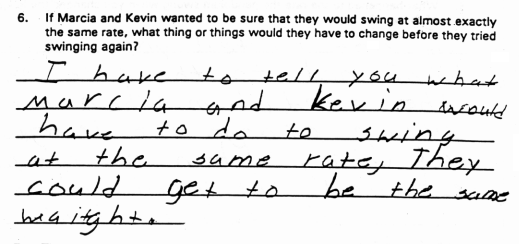 6. If Marcia and Kevin wanted to be sure that they would swing at almost exactly
the same rate, what thing or things would they have to change before they tried
swinging again?
I have to tell you what
Marcia and Kevin would
have to do to swing
at the same rate, They
could get to be the same
waitght.